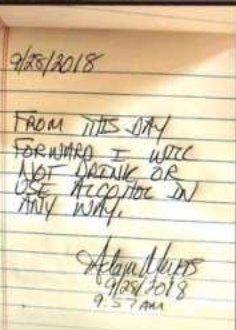 9/28/2018
FROM THIS DAY
FORWARD I WILL
NOT DRINK OR
USE ALCOHOL IN
ANY WAY.
Adam
9/28/2018
9:57 AM